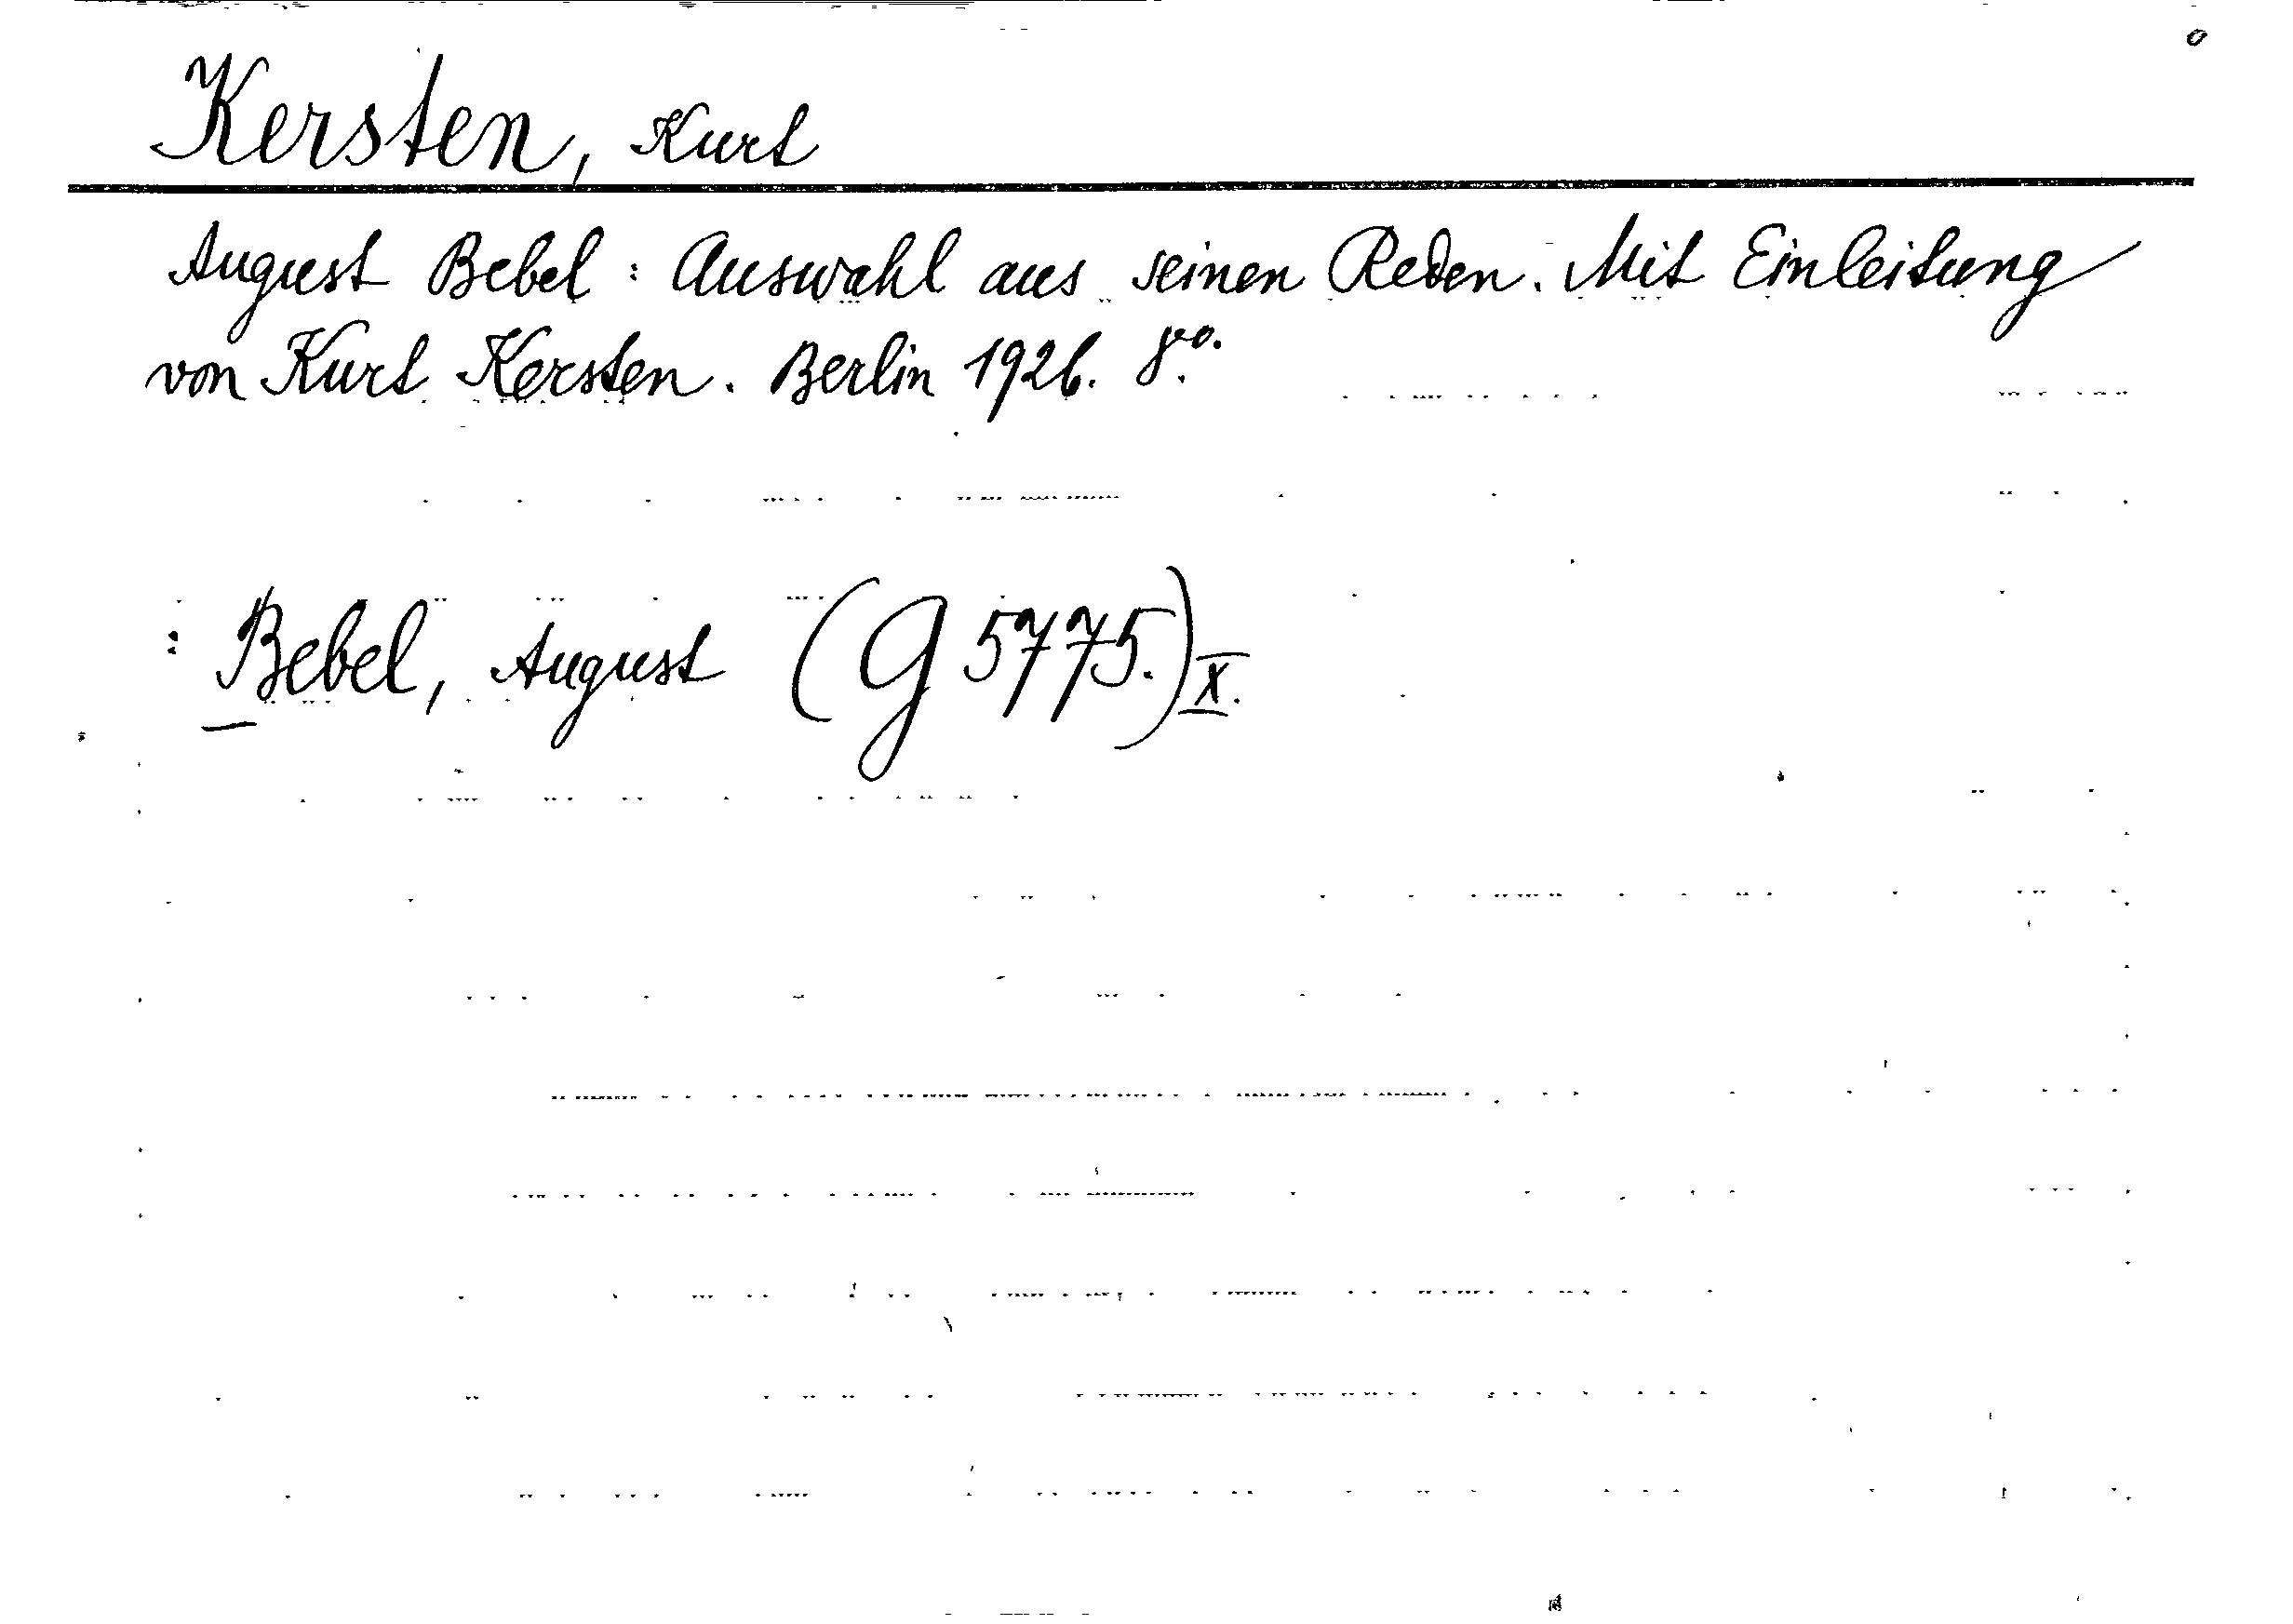 Kersten, Kurt
August Bebel: Auswahl aus seinen Reden. Mit Einleitung
von Kurt Kersten. Berlin 1926. 8vo.
: Bebel, August (G 5775.) X.